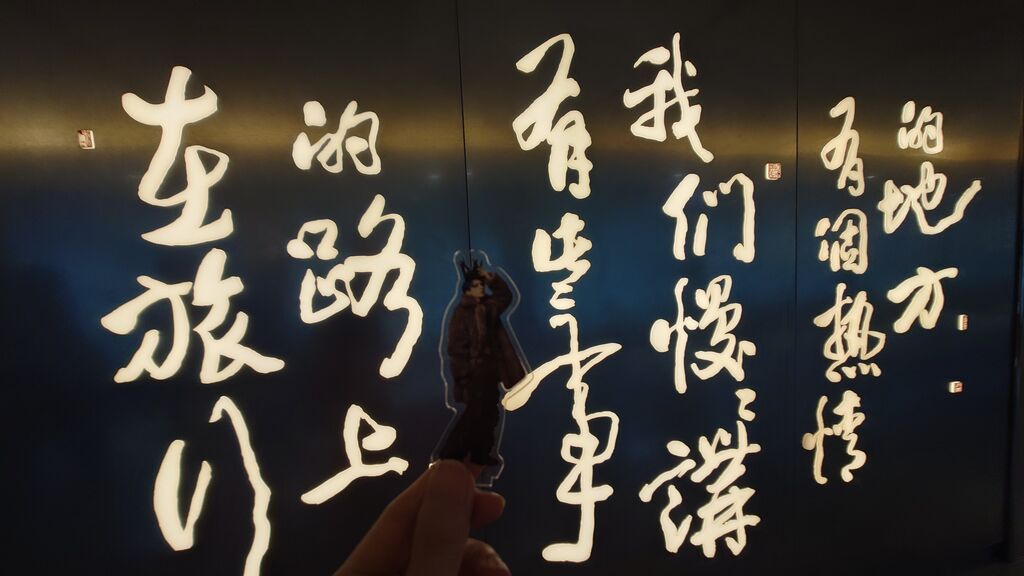 在旅行
的路上
有些事
我们慢〻講
有個熱情
的地方